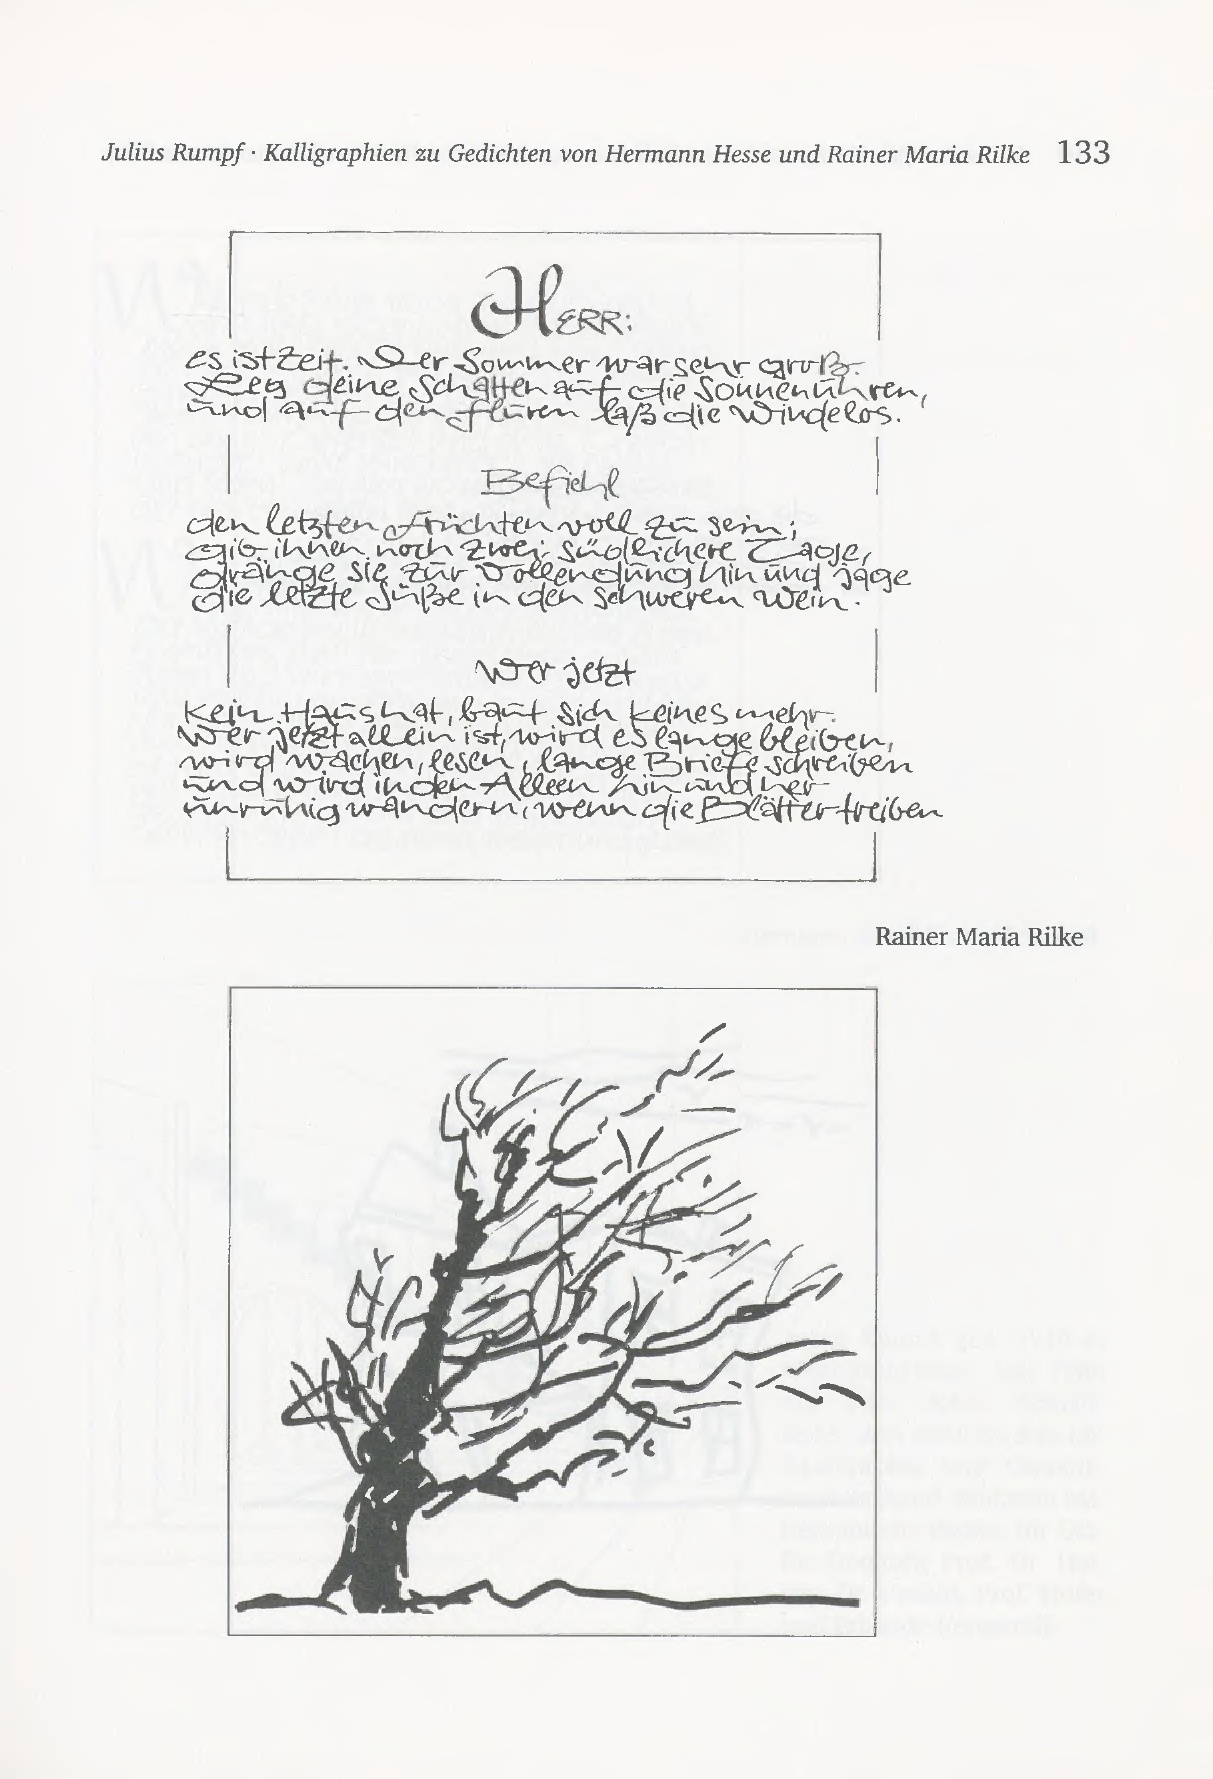 Julius Rumpf · Kalligraphien zu Gedichten von Hermann Hesse und Rainer Maria Rilke 133
HERR:
es ist Zeit. Der Sommer war sehr groß.
Leg deine Schatten auf die Sonnenuhren,
und auf den fluren laß die Winde los.
Befiehl
den letzten Früchten voll zu sein;
gib ihnen noch zwei südlichere Tage,
dränge sie zur Vollendung hin und jage
die letzte Süße in den schweren Wein.
Wer jetzt
kein Haus hat, baut sich keines mehr.
Wer jetzt allein ist, wird es lange bleiben,
wird wachen, lesen, lange Briefe schreiben
und wird in den Alleen hin und her
unruhig wandern, wenn die Blätter treiben
Rainer Maria Rilke